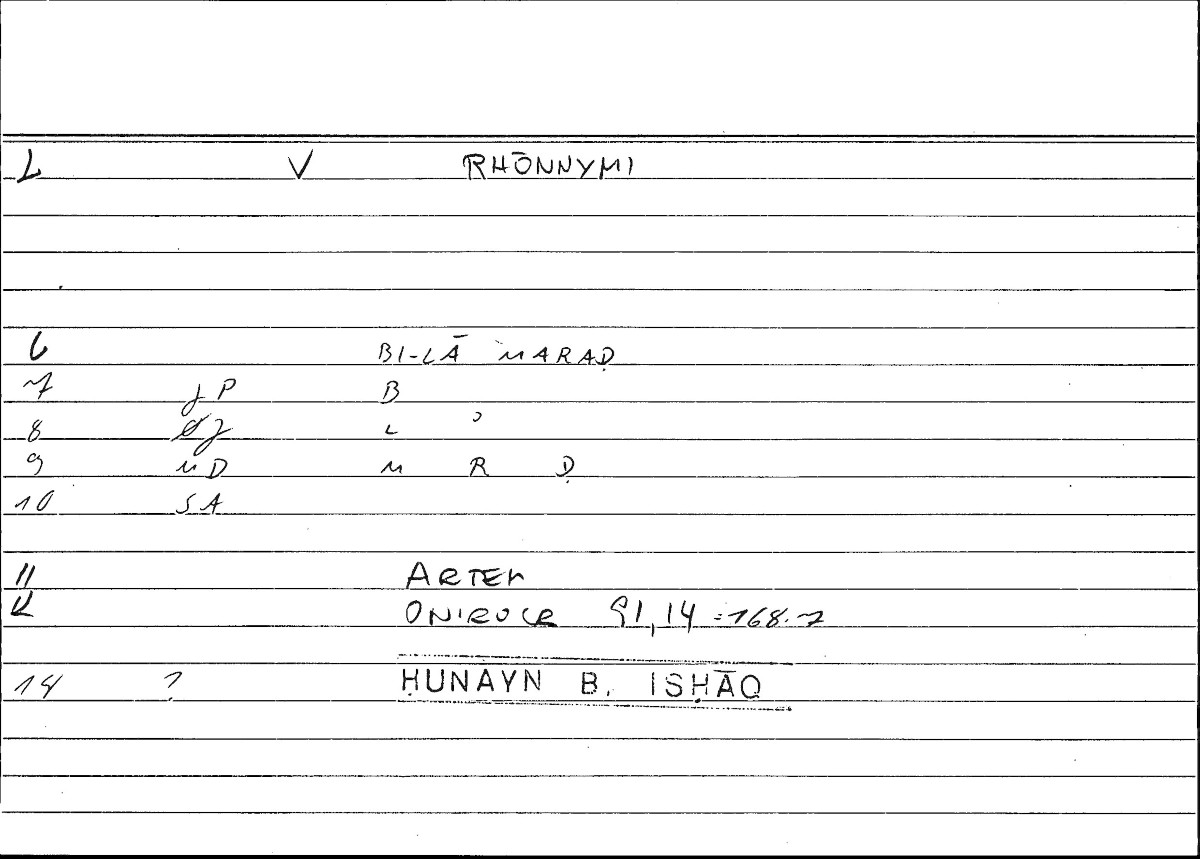 L V RHŌNNYMI
6 BI-LĀ MARAḌ
7 jP B
8 L ʾ
9 MD M R Ḍ
10 SA
11 ARTEM
ONIROCR 91,14 = 168.7
14 ? ḤUNAYN B. ISḤĀQ